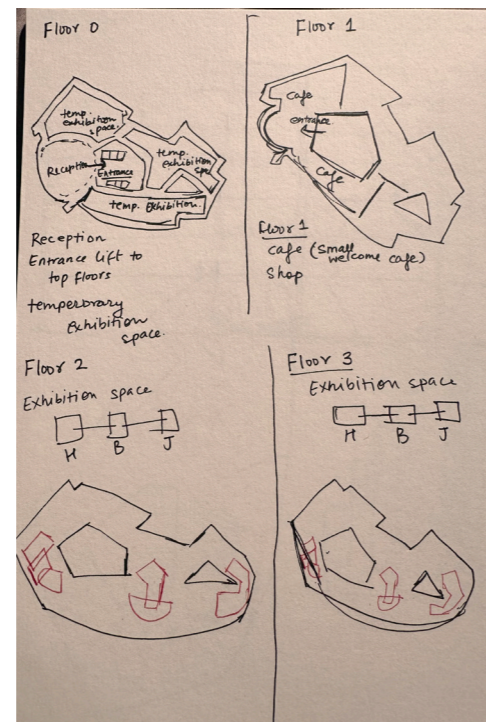 Floor 0
temp.
exhibition
space.
Reception
Entrance
temp.
exhibition
spa
temp. exhibition.
Reception
Entrance lift to
top floors
temperorary
Exhibition
space.
Floor 1
cafe
entrance
cafe
Floor 1
cafe (small
welcome cafe)
Shop
Floor 2
Exhibition space
H B J
Floor 3
Exhibition space
H B J